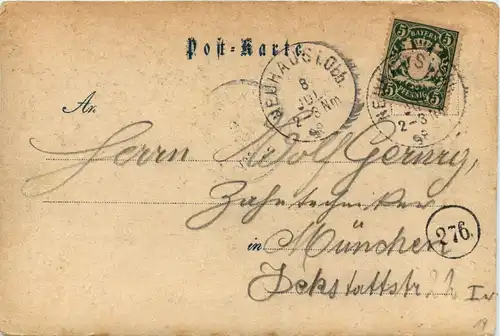 Post-Karte.
NEUHAUS i.Obb.
8
JUL
2-3 Nm
98
5 BAYERN 5
5 PFENNIG 5
2-3
98
An
Herrn Adolf Gernig,
Zahntechniker
in München
276.
Ickstattstr.